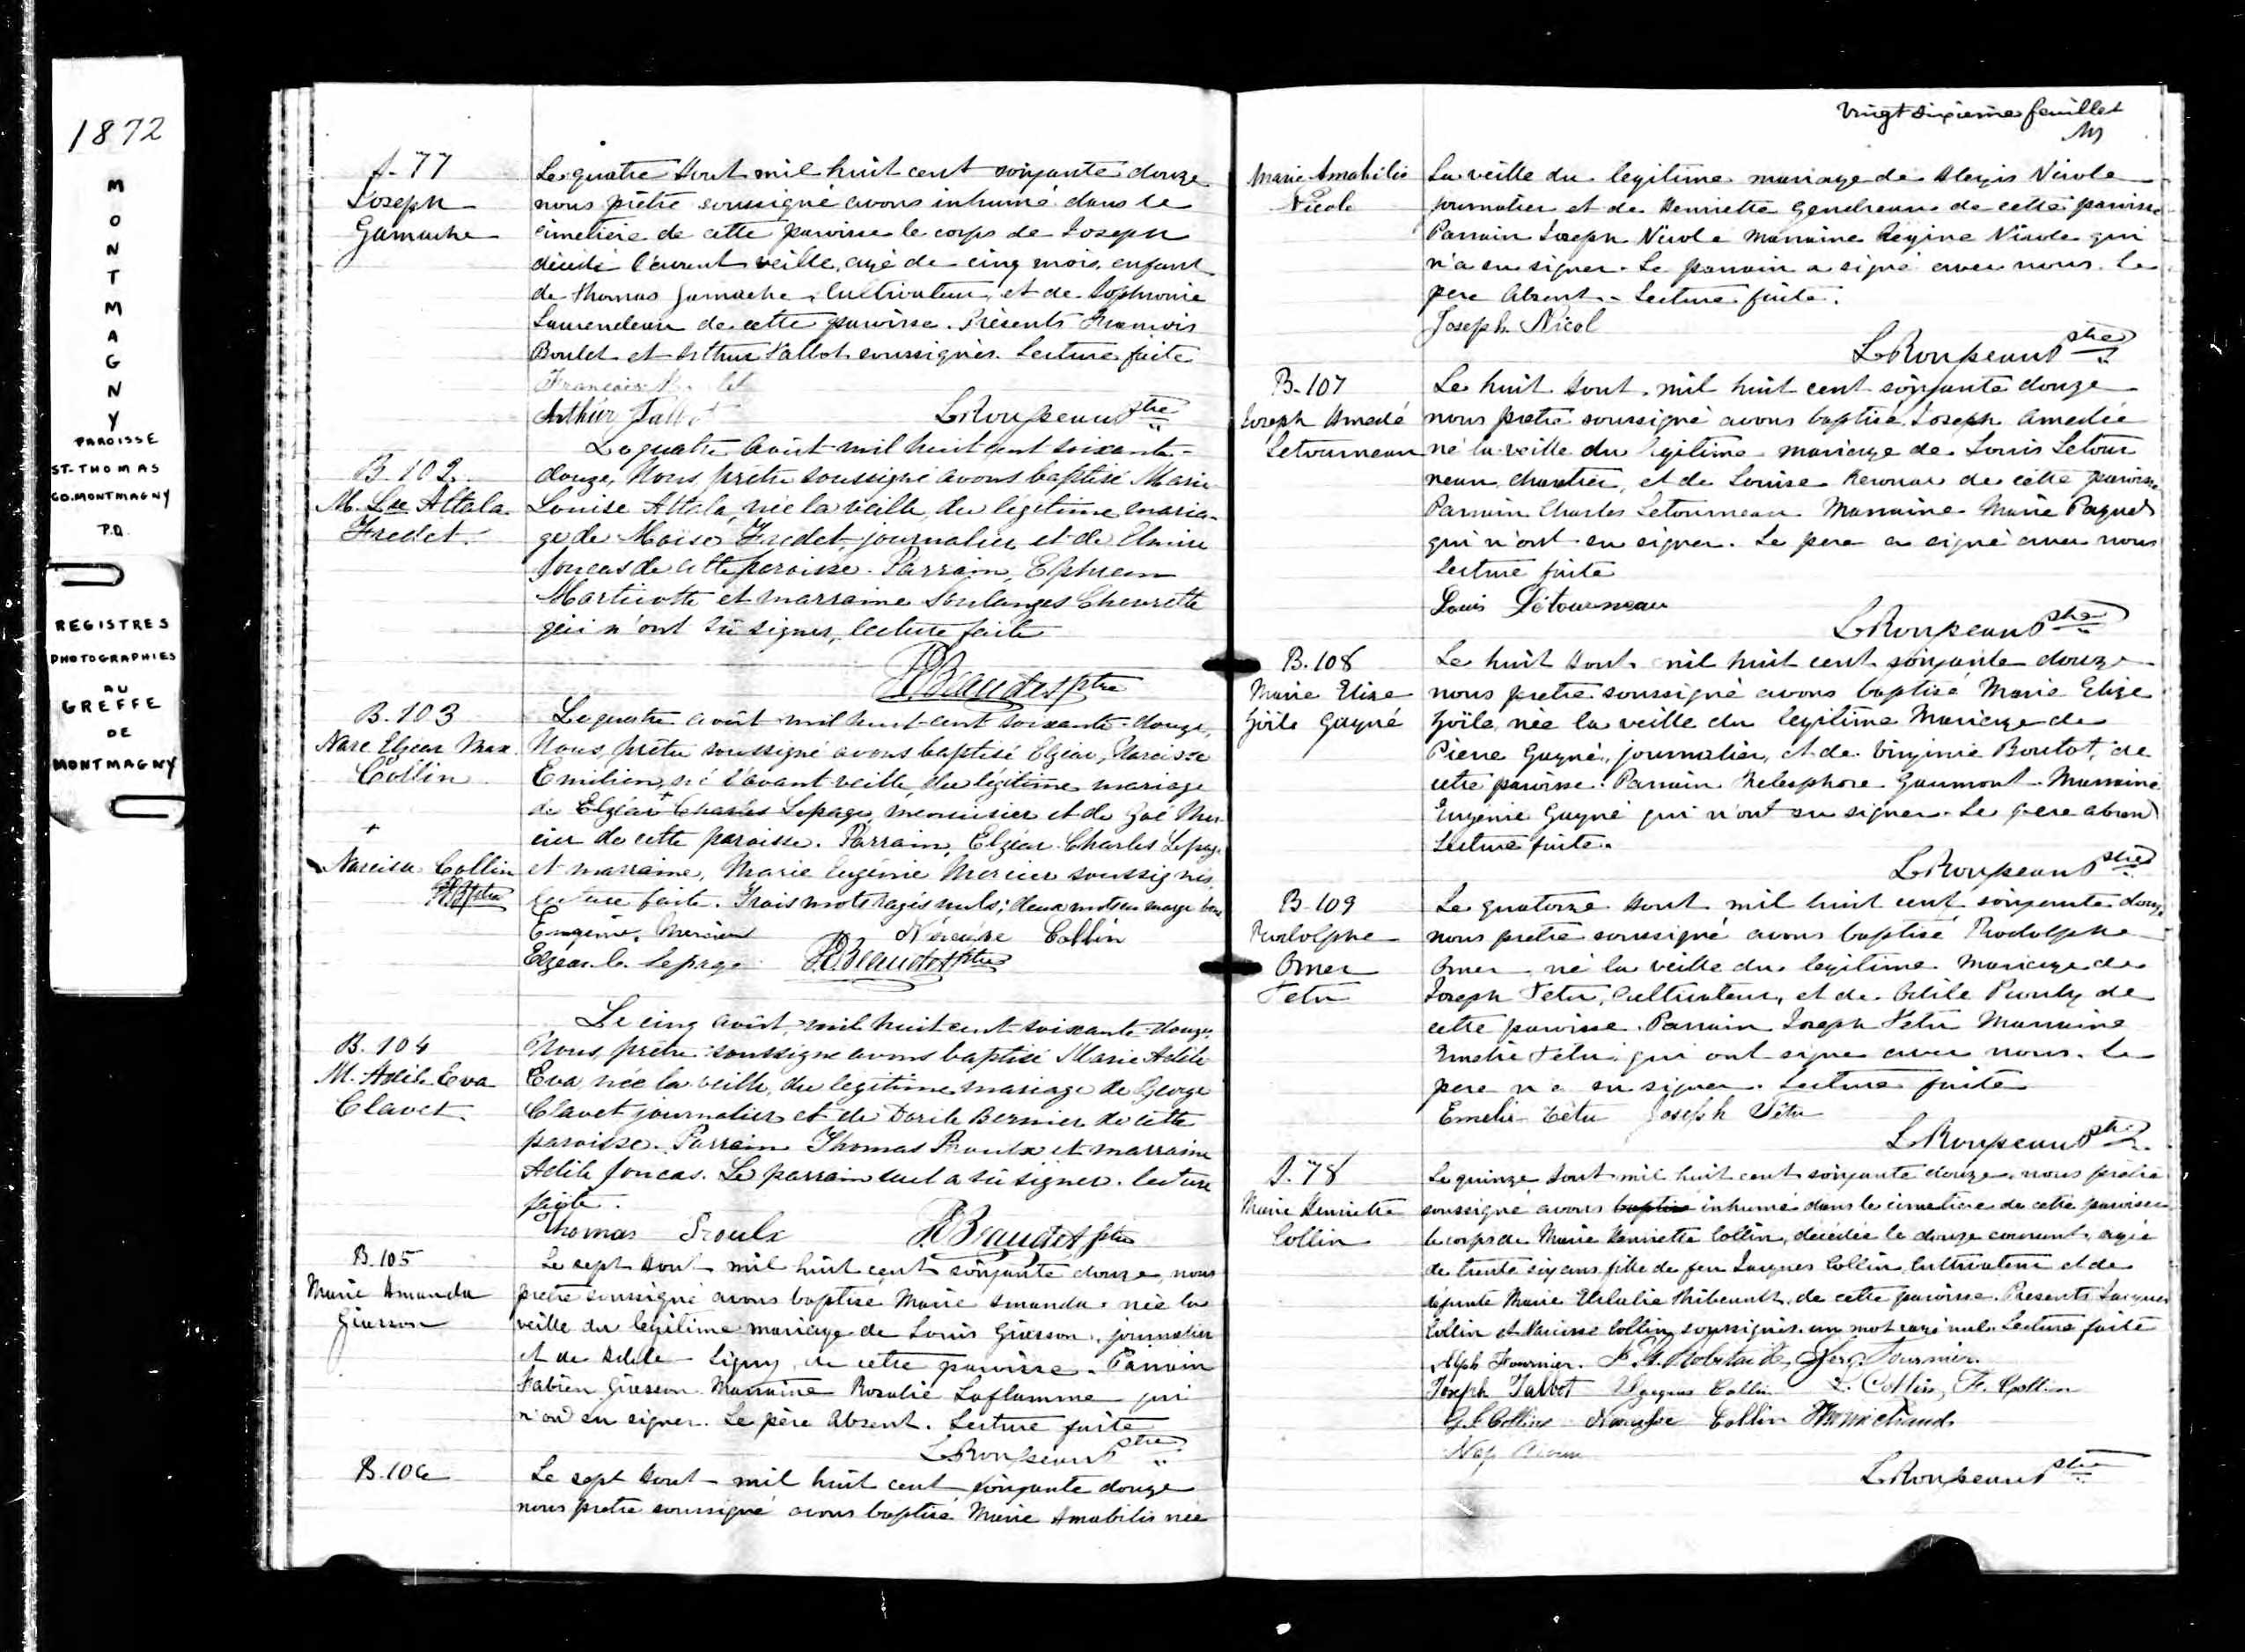 1872
MONTMAGNY
PAROISSE
ST-THOMAS
CO. MONTMAGNY
P.Q.
REGISTRES
PHOTOGRAPHIES
AU
GREFFE
DE
MONTMAGNY
S-77
Joseph
Gamache
Le quatre Aout mil huit cent soixante douze
nous prêtre soussigné avons inhumé dans le
cimetiere de cette paroisse le corps de Joseph
décédé l'avant veille, agé de cinq mois, enfant
de Thomas Gamache, Cultivateur, et de Sophronie
Laurendeau de cette paroisse. Présents François
Boulet et Arthur Talbot soussignés. Lecture faite
François
Arthur Talbot
LRousseau Ptre
B. 102.
M. Lse Attala
Fredet.
Le quatre août mil huit cent soixante-
douze, Nous, prêtre soussigné avons baptisé Marie
Louise Attala, née la veille, du légitime maria-
ge de Moïse Fredet, journalier et de Elmire
Joncas de cette paroisse. Parrain, Ephrem
Marticotte et marraine Soulanges Chevrette
qui n'ont sû signer, lecture faite
Beaudet ptre
B. 103
Narc Elzear Max
Collin
Le quatre août mil huit-cent soixante-douze,
Nous, prêtre soussigné avons baptisé Elzéar, Narcisse
Emilien, né l'avant veille, du légitime mariage
de Elzéar + Charles Lepage, menuisier et de Zoé Mer-
cier de cette paroisse. Parrain, Elzéar Charles Lepage
+
Narcisse Collin
et marraine, Marie Eugénie Mercier soussignés,
lecture faite. Trois mots rayés nuls; deux mots en marge bons
Eugénie Mercier Narcisse Collin
Elzear C. Lepage Beaudet Ptre
B. 104
M. Adile Eva
Clavet.
Le cinq août, mil huit cent soixante-douze,
Nous, prêtre soussigné avons baptisé Marie Adile
Eva née la veille, du légitime mariage de George
Clavet journalier et de Darile Bernier de cette
paroisse. Parrain Thomas Proulx et marraine
Adile Joncas. Le parrain seul a sû signer. lecture
faite.
Thomas Proulx Beaudet ptre
B. 105
Marie Amanda
Giasson
Le sept Aout mil huit cent soixante douze, nous
pretre soussigné avons baptisé Marie Amanda née la
veille du legitime mariage de Louis Giasson, journalier
et de Adele Ligny, de cette paroisse. Parrain
Fabien Giasson Marraine Rosalie Laflamme qui
n'ont su signer. Le père Absent. Lecture faite
LRousseau Ptre
B. 106
Le sept Aout mil huit cent soixante douze
nous pretre soussigné avons baptisé Marie Amabilis née
Vingt sixieme feuillet
Marie Amabilis
Nicole
La veille du legitime mariage de Alexis Nicole
journalier et de Henriette Gendreau de cette paroisse
Parrain Joseph Nicole Marraine Regine Nicole qui
n'a su signer. Le parrain a signé avec nous. Le
pere Absent. - Lecture faite.
Joseph Nicol
LRousseau Ptre
B. 107
Joseph Amedé
Letourneau
Le huit Aout mil huit cent soixante douze
nous pretre soussigné avons baptisé Joseph Amedée
né la veille du legitime mariage de Louis Letour
neau, charetier, et de Louise Renouar de cette paroisse
Parrain Charles Letourneau Marraine Marie Paquet
qui n'ont su signer. Le pere a signé avec nous
Lecture faite
Louis Létourneau
LRousseau Ptre
B. 108
Marie Elize
Zoïle Gagné
Le huit Aout mil huit cent soixante douze
nous pretre soussigné avons baptisé Marie Elize
Zoïle, née la veille du legitime Mariage de
Pierre Gagné, journalier, et de Virginie Boutot, de
cette paroisse. Parrain Thelesphore Gaumont Marraine
Eugénie Gagné qui n'ont su signer. Le pere absent
Lecture faite.
LRousseau Ptre
B. 109
Rodolphe
Omer
Tetu
Le quatorze Aout mil huit cent soixante douze
nous pretre soussigné avons baptisé Rodolphe
Omer né la veille du legitime Mariage de
Joseph Tetu, Cultivateur, et de Odile Proulx de
cette paroisse. Parrain Joseph Tetu Marraine
Emelie Tétu qui ont signé avec nous. Le
pere n'a su signer. Lecture faite
Emelie Têtu Joseph Têtu
LRousseau Ptre
S. 78
Marie Henriette
Collin
Le quinze Aout mil huit cent soixante douze, nous pretre
soussigné avons baptisé inhumé dans le cimetiere de cette paroisse
le corps de Marie Henriette Collin, décédée le douze courant, agée
de trente six ans fille de feu Jacques Collin, Cultivateur et de
défunte Marie Eulalie Thibeault, de cette paroisse. Presents Jacques
Collin et Narcisse Collin soussignés. un mot rayé nul. Lecture faite
Alph Fournier. Fournier.
Joseph Talbot Jacques Collin L. Collin, F. Collin
Collin Narcisse Collin
Nap
LRousseau Ptre